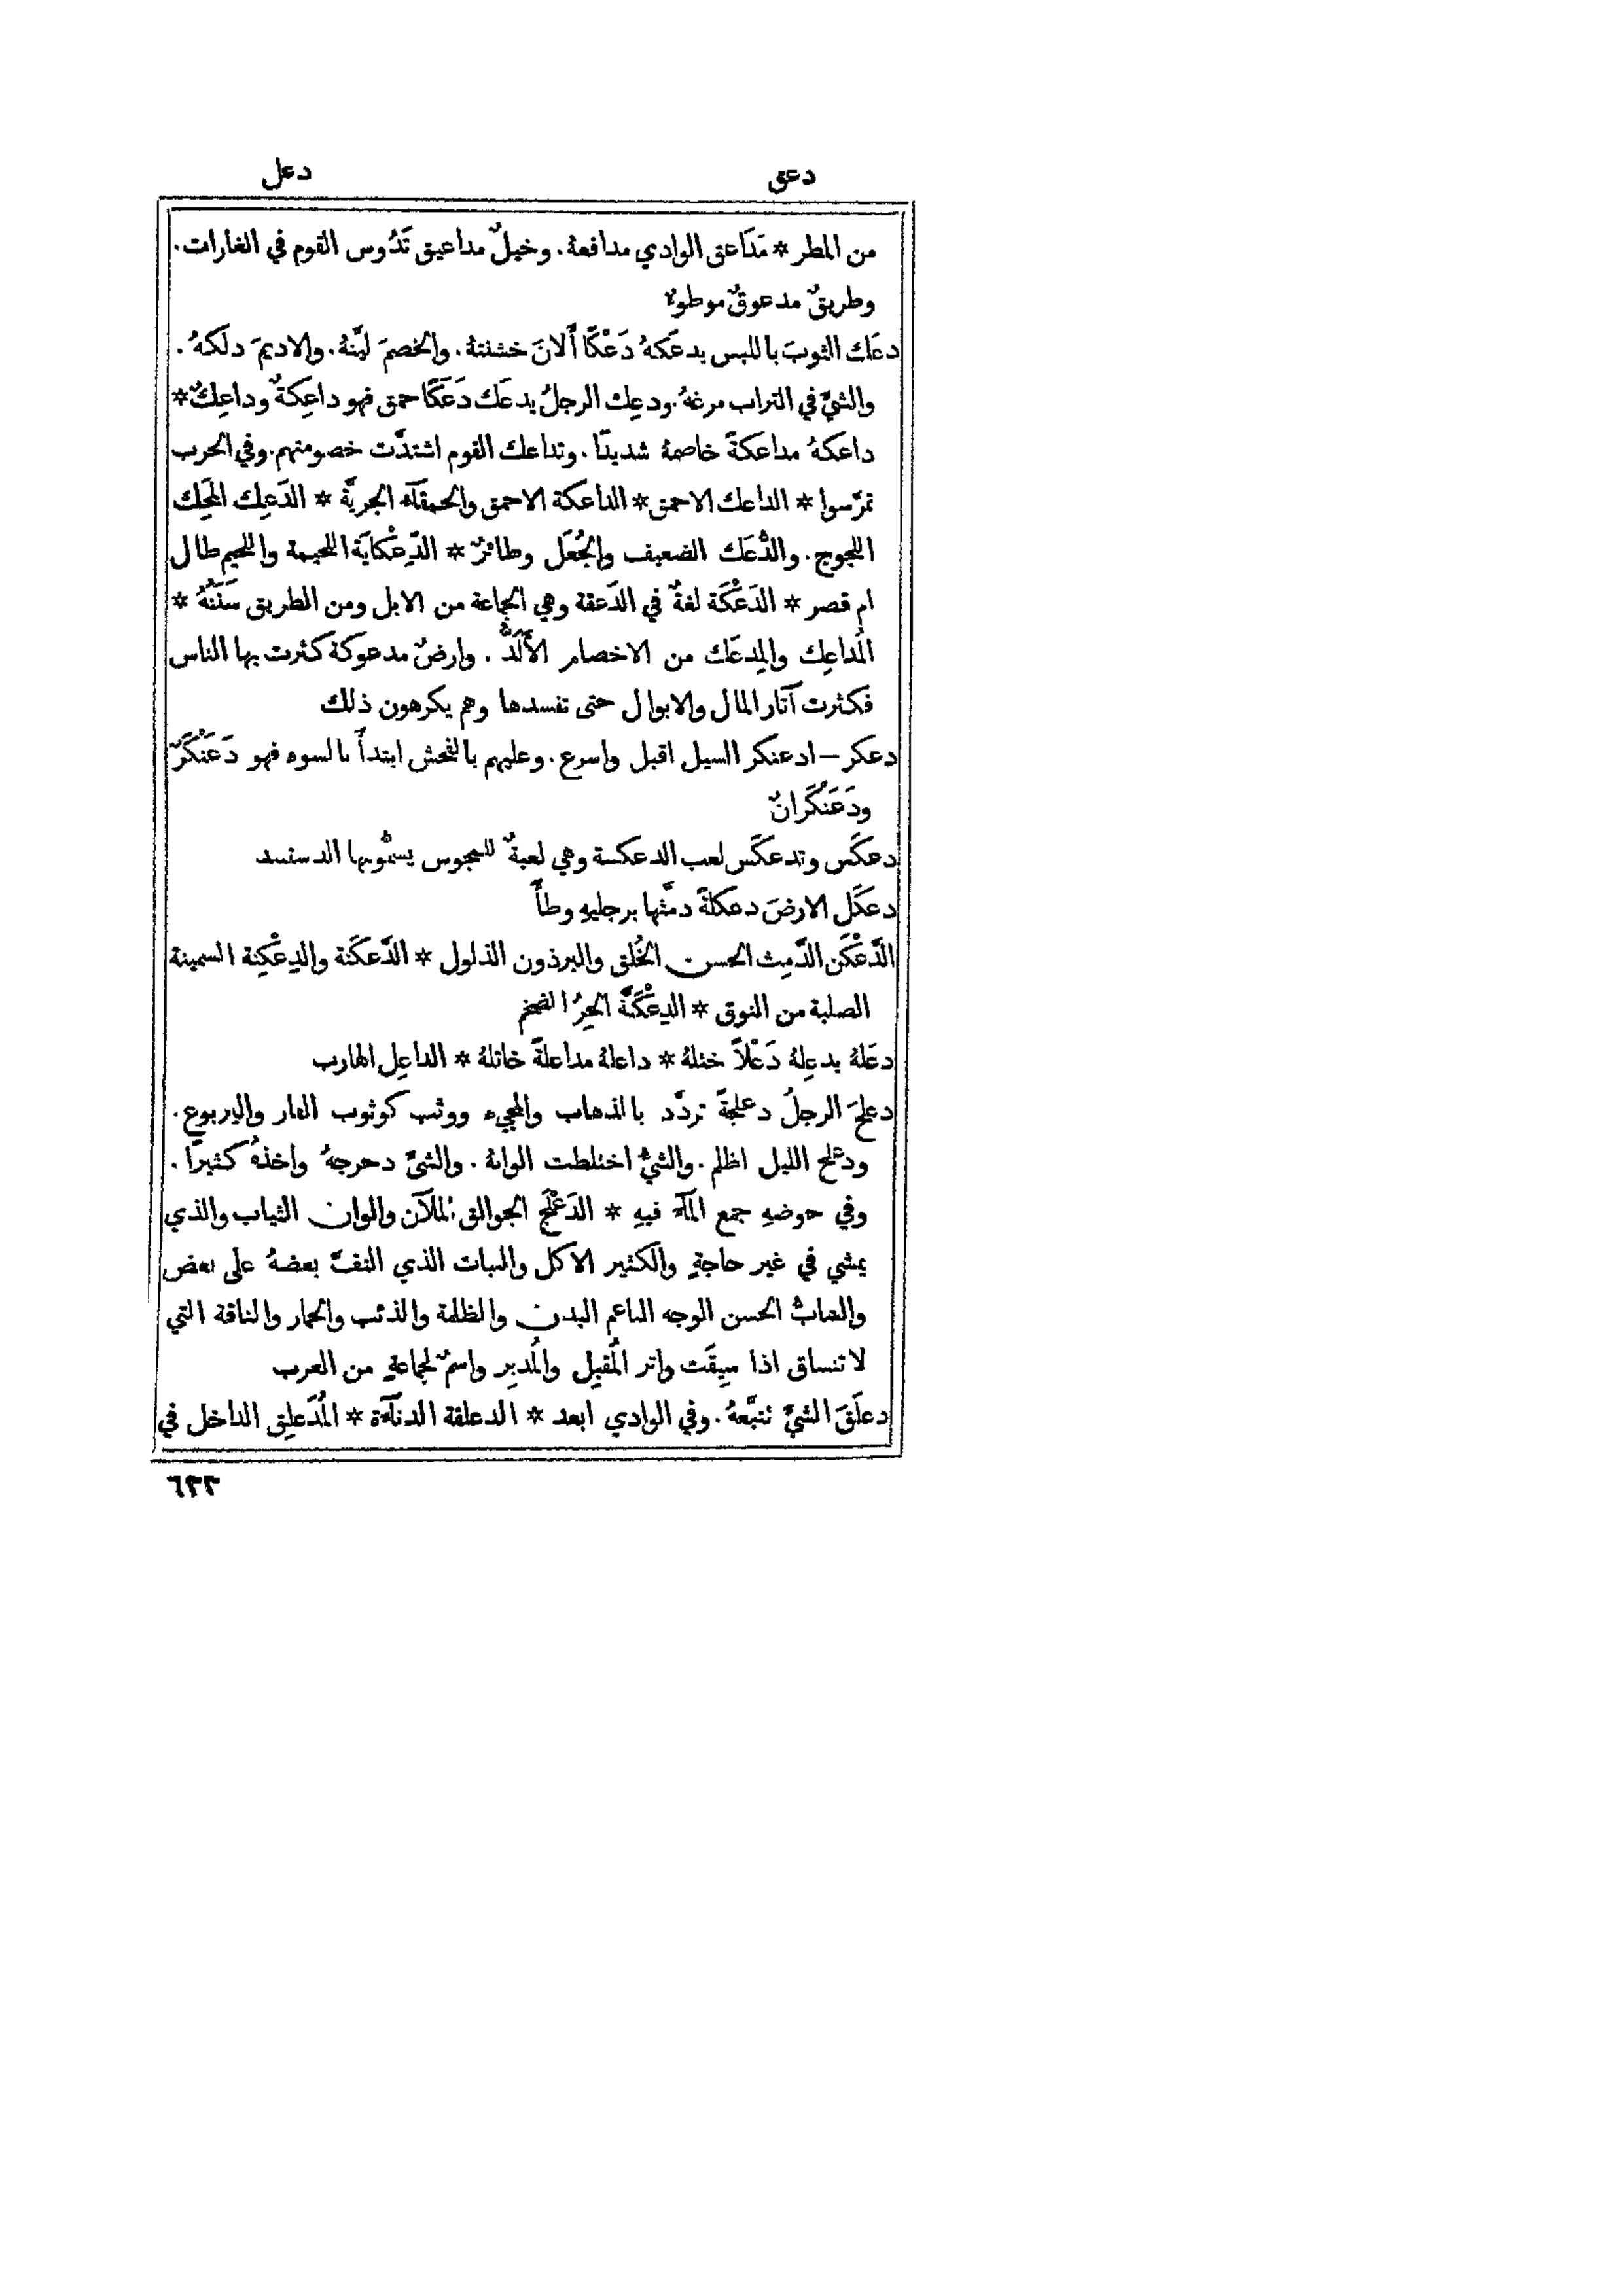 دعق دعل
من المطر * مَدَاعق الوادي مدافعهُ. وخيلٌ مداعيق تَدُوس القوم في الغارات.
وطريقٌ مدعوقٌ موطوءٌ
دعَك الثوبَ باللبس يدعَكهُ دَعْكًا أَلانَ خشنتهُ. والخصمَ ليَّنهُ. والاديمَ دلكهُ.
والشيَّ في التراب مرغهُ. ودعِك الرجلُ يدعَك دَعَكًا حمق فهو داعِكةٌ وداعِكٌ *
داعكهُ مداعكةً خاصمهُ شديدًا. وتداعك القوم اشتدَّت خصومتهم. وفي الحرب
تمرَّسوا * الداعك الاحمق * الداعكة الاحمق والحمقآء الجريَّة * الدَعِك المَحِك
اللجوج. والدُّعَك الضعيف والجُعَل وطائرٌ * الدِّعْكايَة اللحيمة واللحيم طال
ام قصر * الدَعْكَة لغةٌ في الدَعقة وهي الجماعة من الابل ومن الطريق سَنَنهُ *
المُداعِك والمِدعَك من الاخصام الأَلَدُّ. وارضٌ مدعوكة كثرت بها الناس
فكثرت آثار المال والابوال حتى تفسدها وهم يكرهون ذلك
دعكر – ادعنكر السيل اقبل واسرع. وعليهم بالفحش ابتدأَ بالسوء فهو دَعَنْكَرٌ
ودَعَنْكَرانٌ
دعكَس وتدعكَس لعب الدعكسة وهي لعبةٌ للمجوس يسمُّونها الدستبند
دعكَل الارضَ دعكلةً دمَّثها برجليهِ وطأً
الدَّعْكَن الدَّمِث الحسن الخُلق والبرذون الذلول * الدَّعكَنة والدِعْكِنة السمينة
الصلبة من النوق * الدِعْكَنَّة الحِرُ الضخم
دعَلهُ يدعِلهُ دَعْلاً ختلهُ * داعلهُ مداعلةً خاتلهُ * الداعِل الهارب
دعلجَ الرجلُ دعلجةً تردَّد بالذهاب والمجيء ووثب كوثوب الفار واليربوع.
ودعلج الليل اظلم. والشيُّ اختلطت الوانهُ. والشيَّ دحرجهُ واخذهُ كثيرًا.
وفي حوضهِ جمع المآءَ فيهِ * الدَعْلَج الجوالق الملآن والوان الثياب والذي
يمشي في غير حاجةٍ والكثير الاكل والنبات الذي التفَّ بعضهُ على بعض
والشابُّ الحسن الوجه الناعم البدن والظلمة والذئب والحمار والناقة التي
لا تنساق اذا سِيقَت واثر المُقبِل والمُدبِر واسمٌ لجماعةٍ من العرب
دعلَقَ الشيَّ تتبَّعهُ. وفي الوادي ابعد * الدعلقة الدنآءَة * المُدَعلِق الداخل في
٦٣٣